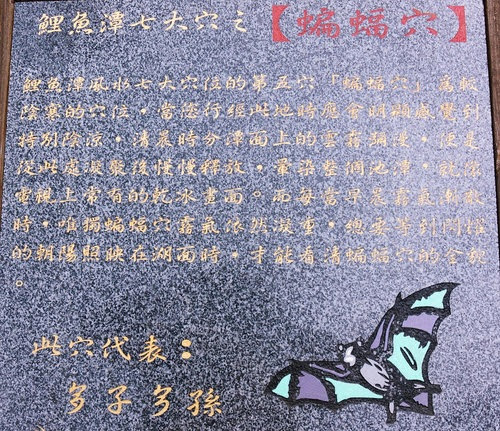 鯉魚潭七大穴之【蝙蝠穴】
鯉魚潭風水七大穴位的第五穴「蝙蝠穴」為較
陰寒的穴位，當您行經此地時應會明顯感覺到
特別陰涼，清晨時分潭面上的雲霧瀰漫，便是
從此處凝聚後慢慢釋放，暈染整個池潭，就像
電視上常有的乾冰畫面。而每當早晨霧氣漸散
時，唯獨蝙蝠穴霧氣依然凝重，總要等到閃耀
的朝陽照映在湖面時，才能看清蝙蝠穴的全貌
。
此穴代表：
多子多孫